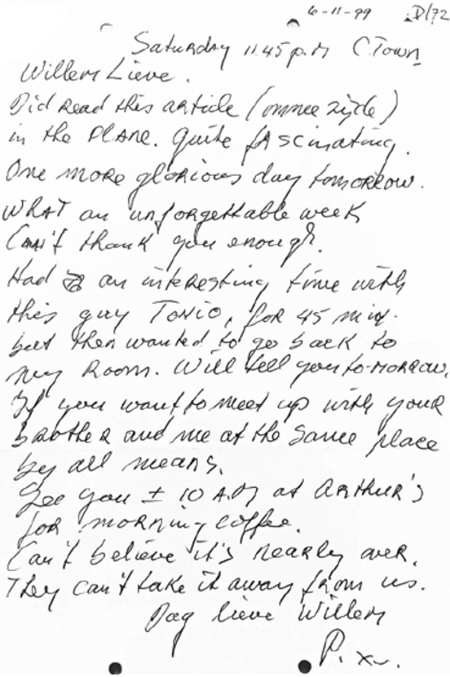 6-11-99 D/72
Saturday 11.45 p.m C.Town
Willem Lieve.
Did read this article (omnee zijde)
in the PLANE. Quite fascinating.
One more glorious day tomorrow.
WHAT an unforgettable week
Can't thank you enough.
Had an interesting time with
this guy Tonio, for 45 min.
but then wanted to go back to
my room. Will tell you to-morrow.
If you want to meet up with your
brother and me at the same place
by all means.
See you ± 10 A.M at Arthur's
for morning coffee.
Can't believe it's nearly over.
They can't take it away from us.
Dag lieve Willem
P. x